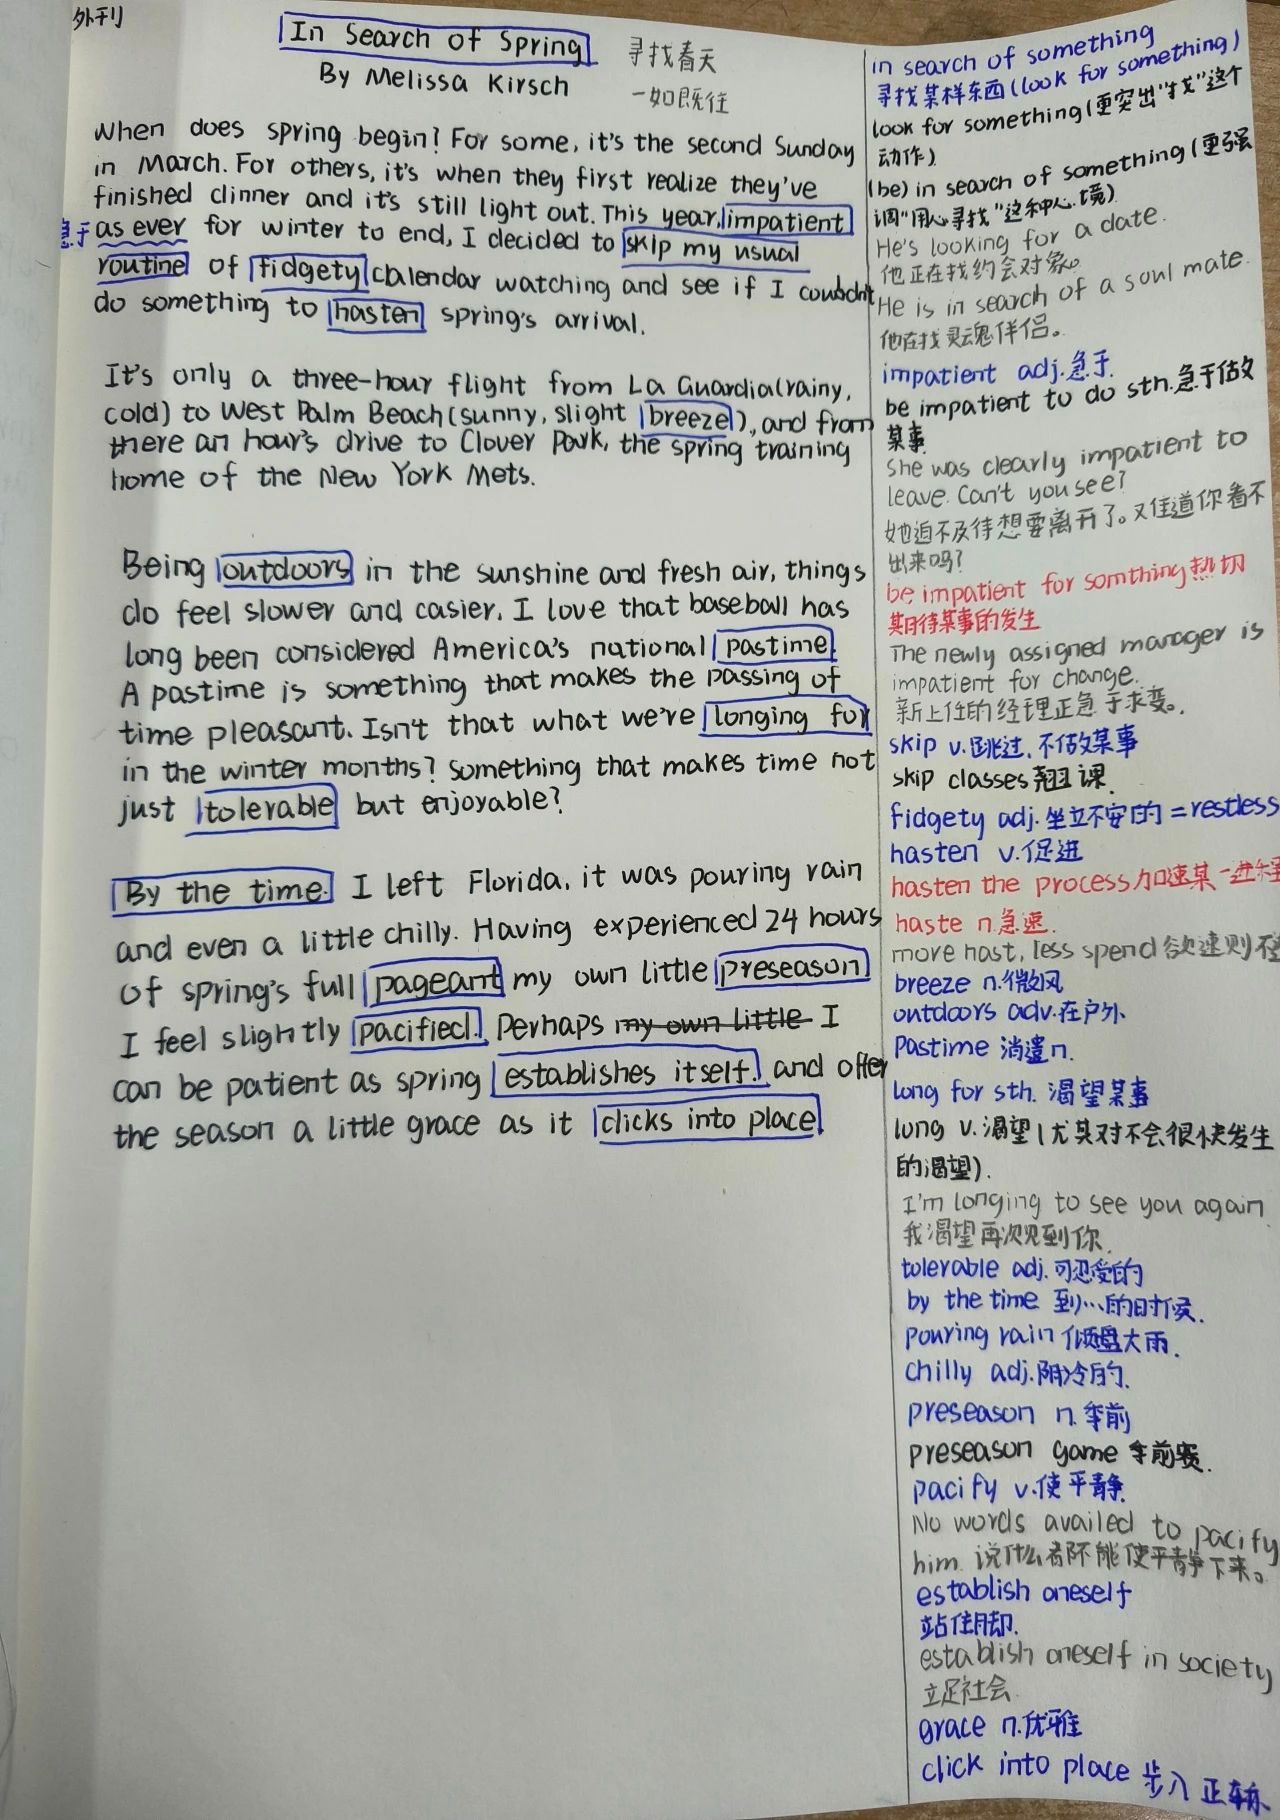 外刊
In Search of Spring
寻找春天
By Melissa Kirsch
一如既往
When does spring begin? For some, it's the second Sunday
in March. For others, it's when they first realize they've
finished dinner and it's still light out. This year, impatient
急于 as ever for winter to end, I decided to skip my usual
routine of fidgety calendar watching and see if I couldn't
do something to hasten spring's arrival.
It's only a three-hour flight from La Guardia(rainy,
cold) to West Palm Beach(sunny, slight breeze), and from
there an hour's drive to Clover Park, the spring training
home of the New York Mets.
Being outdoors in the sunshine and fresh air, things
do feel slower and casier. I love that baseball has
long been considered America's national pastime
A pastime is something that makes the passing of
time pleasant. Isn't that what we're longing for
in the winter months? Something that makes time not
just tolerable but enjoyable?
By the time. I left Florida, it was pouring rain
and even a little chilly. Having experienced 24 hours
of spring's full pageant my own little preseason
I feel slightly pacified. Perhaps my own little I
can be patient as spring establishes itself. and offer
the season a little grace as it clicks into place
in search of something
寻找某样东西(look for something)
look for something(更突出"找"这个
动作)
(be) in search of something(更强
调"用心寻找"这种心境)
He's looking for a date.
他正在找约会对象。
He is in search of a soul mate.
他在找灵魂伴侣。
impatient adj.急于
be impatient to do sth.急于做
某事
She was clearly impatient to
leave. Can't you see?
她迫不及待想要离开了。又住道你看不
出来吗?
be impatient for somthing热切
期待某事的发生
The newly assigned manager is
impatient for change.
新上任的经理正急于求变。
skip v.跳过,不做某事
skip classes翘课.
fidgety adj.坐立不安的=restless
hasten v.促进
hasten the process加速某一进程
haste n.急速.
more hast, less spend 欲速则不
breeze n.微风
outdoors adv.在户外
Pastime 消遣n.
long for sth. 渴望某事
long v.渴望(尤其对不会很快发生
的渴望).
I'm longing to see you again
我渴望再次见到你.
tolerable adj.可忍受的
by the time 到…的时候.
pouring rain倾盘大雨.
chilly adj.阴冷的.
preseason n.季前
preseason game季前赛.
pacify v.使平静.
No words availed to pacify
him. 说什么都不能使平静下来。
establish oneself
站住脚.
establish oneself in society
立足社会
grace n.优雅
click into place 步入正轨.